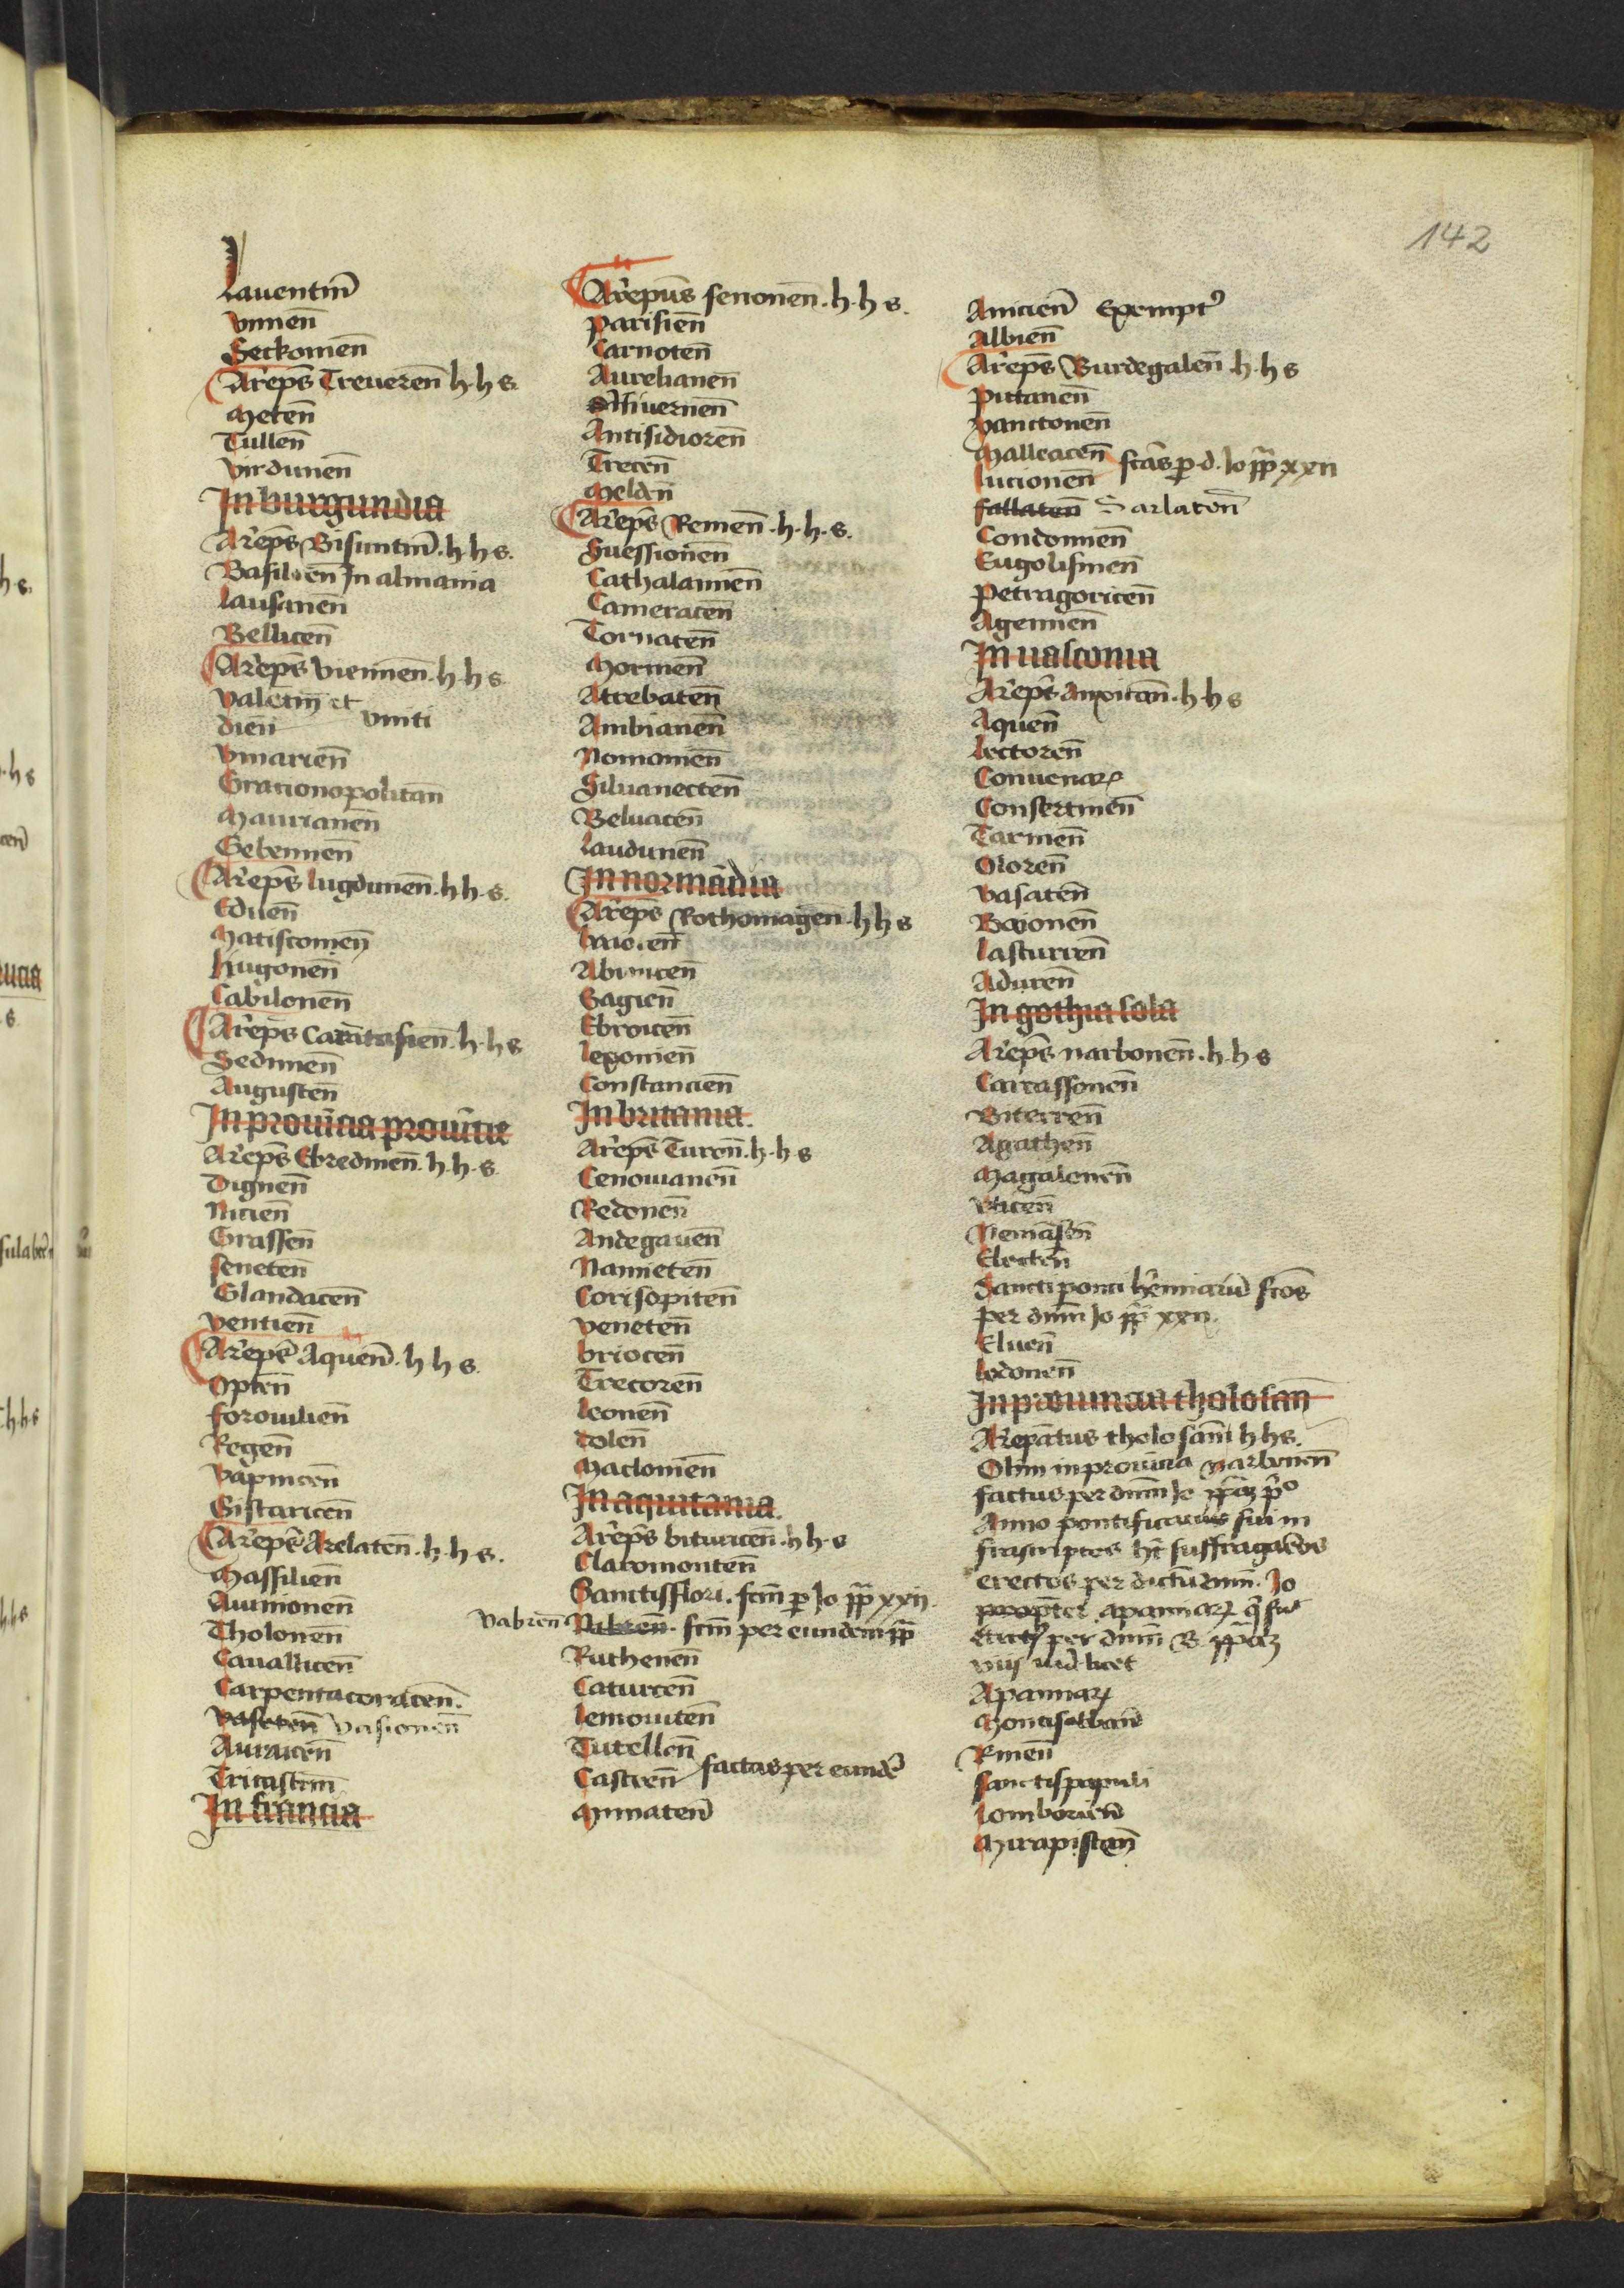 142
Lauentin̄
vimen̄
Seckomen̄
Ar̄eps̄ Treueren̄ h h s.
Meten̄
Tullen̄
Virdunen̄
In burgundia
Ar̄eps̄ Bisuntin̄ . h h s.
Basilien̄ In almania
lausanen̄
Bellicen̄
Ar̄eps̄ viennen̄ . h h s
Valetin̄ et
dien̄ vniti
vinarien̄
Gracionopolitan̄
Maurianen̄
Gebennen̄
Ar̄eps̄ lugdunen̄ . h h . s.
Eduen̄
Matiscomen̄
lingonen̄
Cabilonen̄
Ar̄eps̄ Tarātasien̄ . h . h s
Sedunen̄
Augusten̄
In prouīcia prouīcie
Ar̄eps̄ Ebredunen̄ . h . h . s.
Dignen̄
Nicien̄
Grassen̄
seneten̄
Glandacen̄
ventien̄
Ar̄eps̄ Aquen̄ . h h s.
Opten̄
foroiulien̄
Regen̄
Vapincen̄
Sistaricen̄
Ar̄eps̄ Arelaten̄ . h . h s.
Massilien̄
Auinonen̄
Tholonen̄
Cauallicen̄
Carpentacoracten̄.
vasoten̄ vasionen̄
Auraicen̄
Tricastin̄
In francia
Ar̄epus̄ senonen̄ . h . h s.
parisien̄
Carnoten̄
Aurelianen̄
Niuernen̄
Antisidioren̄
Trecen̄
Melden̄
Ar̄eps̄ Remen̄ . h . h . s.
Suessionen̄
Cathalaunen̄
Cameracen̄
Tornacen̄
Morinen̄
Atrebaten̄
Ambianen̄
Nomomen̄
Siluanecten̄
Beluacen̄
laudunen̄
In normādia
Ar̄eps̄ Rothomagen̄ . h h s
baiocen̄
Abrincen̄
Sagien̄
Ebroicen̄
lexonien̄
Constancien̄
In britania.
Ar̄eps̄ Turon̄ . h . h s
Cenomanen̄
Redonen̄
Andegauen̄
Nanneten̄
Corisopiten̄
veneten̄
briocen̄
Trecoren̄
leonen̄
dolen̄
Maclouien̄
In aquitania.
Ar̄eps̄ bituricen̄ . h h . s
Claromonten̄
Sanctifflori . fcm̄ p Jo pp̄ xxij.
vabren̄ Nabren̄ . fcm̄ per eundem pp̄
Ruthenen̄
Caturcen̄
lemouicen̄
Tutellen̄
Castren̄ factas per eundē
Mimaten̄
Anicien̄ Exempt9
Albien̄
Ar̄eps̄ Burdegalen̄ . h . h s
pictanen̄
xanctonen̄
Malleacen̄
lucionen̄ fctās p d. Jo pp̄ xxij
sallaten̄ Sarlaten̄
Condomien̄
Eugolismen̄
Petragoricen̄
Agennen̄
In uasconia
Ar̄eps̄ Auxitan̄ . h h s
Aquen̄
lectoren̄
Conuenar
Conseranen̄
Tarmen̄
Oloren̄
vasaten̄
Baionen̄
lasturren̄
Aduren̄
In gothia sola
Ar̄eps̄ narbonen̄ . h . h s
Carcassonen̄
Biterren̄
Agathen̄
Magalonen̄
Vticen̄
Nemāsen̄
Electen̄
Sancti poncii
per dnm̄ Jo pp̄ xxij.
Eluen̄
lodonen̄
In prouincia tholosan̄
Ar̄epātus tholosan̄ h h s.
Olim in prouīcia narbonen̄
factus per dnm̄ Jo pp̄ p̄o
Anno pontificatus sui in
frascriptos ht̄ suffragāēōs
erectos per dictū dnm̄ . Jo
propter apamiar q̄ fuit
per dnm̄ B. pp̄
viij videlicet
Apamiar
Montisalban̄
Riuen̄
sanctipapuli
lomberien̄
Mirapiscen̄